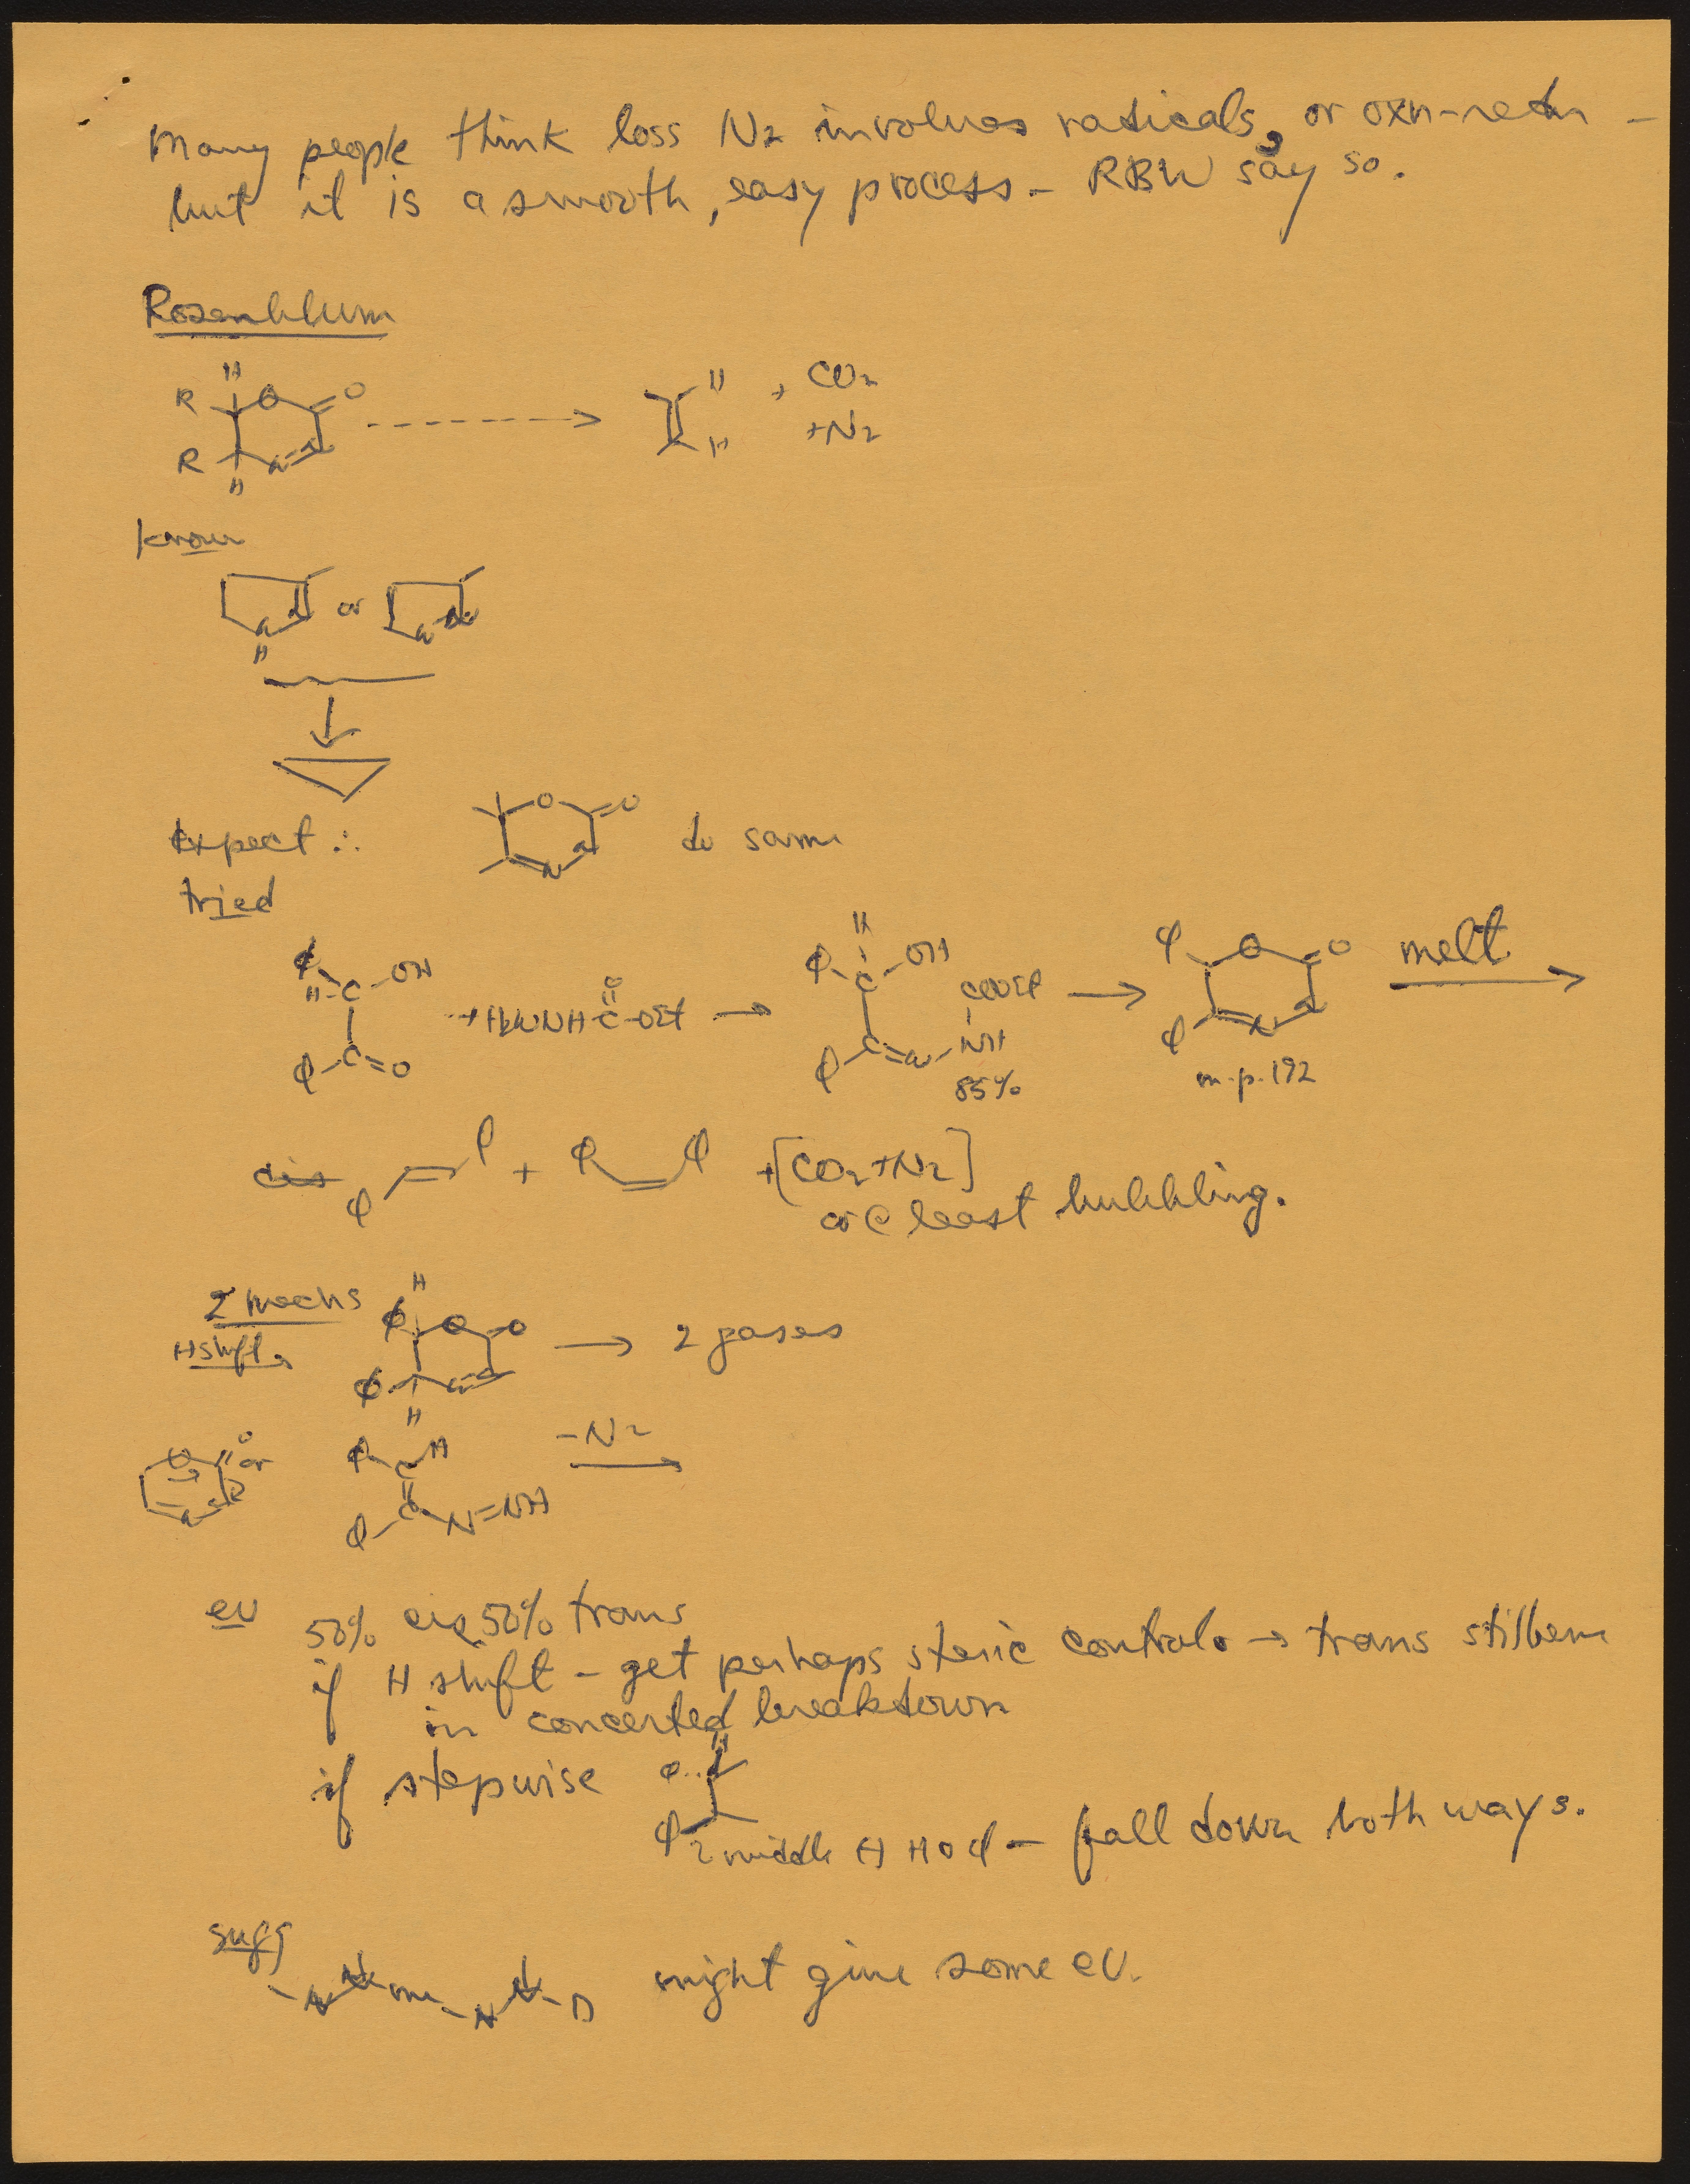 Many people think loss N2 involves radicals, or oxn-redn -
but it is a smooth, easy process - RBW say so.
Rosenblum
H
R O O
R N=N
H
H
H
+ CO2
+N2
Known
N N or N N
H
Expect ∴ O O N N do same
tried
φ
H-C-OH
φ-C=O
+H2NNHC-OEt
O
→
H
φ-C-OH
COOEt
φ-C=N-NH
85%
→
φ O O
φ N N
m.p. 192
melt
φ φ + φ φ +[CO2+N2]
or @ least bubbling.
2 mechs
H shift
H
φ O O
φ N N
H
→ 2 gases
O O N N or
φ-C-H
φ-C-N=NH
-N2
ev 50% cis, 50% trans
if H shift - get perhaps steric control → trans stilbene
in concerted breakdown
if stepwise
H
φ
φ
middle H φ - fall down both ways.
sugg
N N Me N N-D might give some ev.